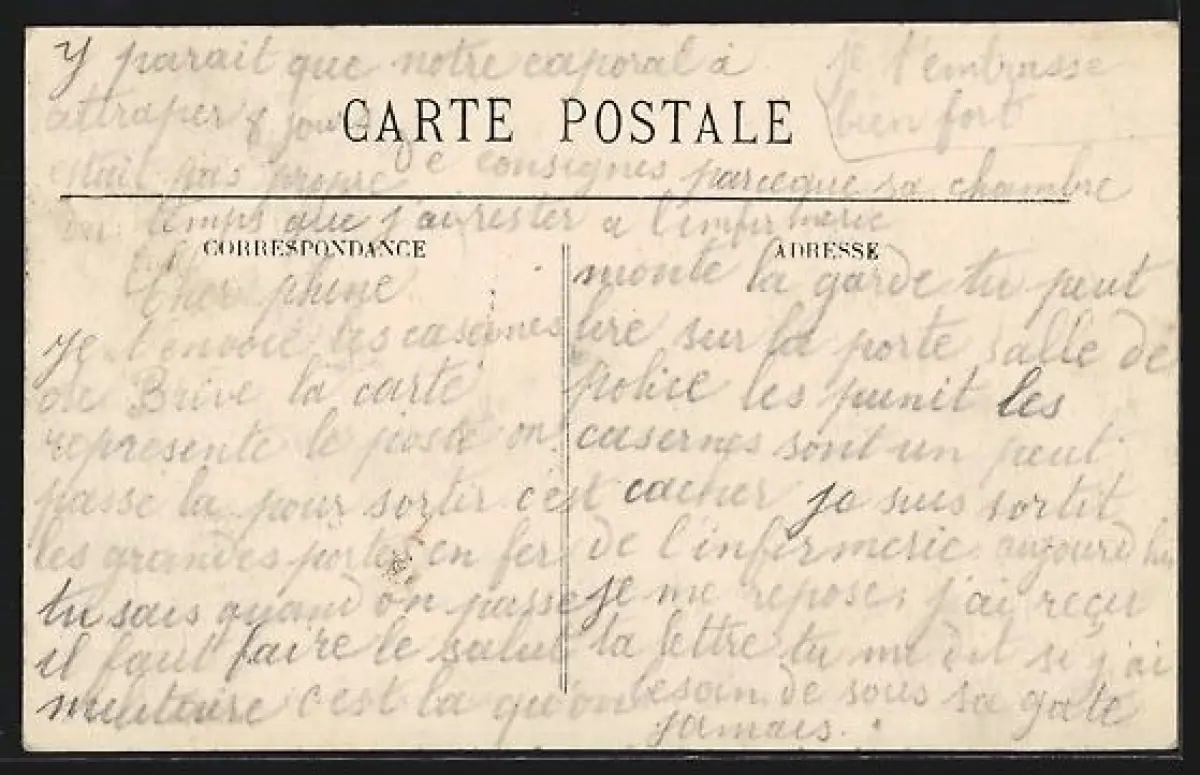 y parait que notre caporal à
attraper 8 jours
de consignes parceque sa chambre
etait pas propre
temps que j'ai rester a l'infirmerie
je t'embrasse
bien fort
CARTE POSTALE
CORRESPONDANCE
phine
je t'envoie les casernes
de Brive la carte
represente le poste on
passe la pour sortir c'est
les grandes portes en fer
tu sais quand on passe
il faut faire le salut
militaire c'est la qu'on
ADRESSE
monte la garde tu peut
lire sur la porte salle de
police les punit les
casernes sont un peut
cacher je suis sortit
de l'infirmerie aujourd'hui
je me repose j'ai reçu
ta lettre tu me dit si j'ai
besoin de sous sa gate
jamais.